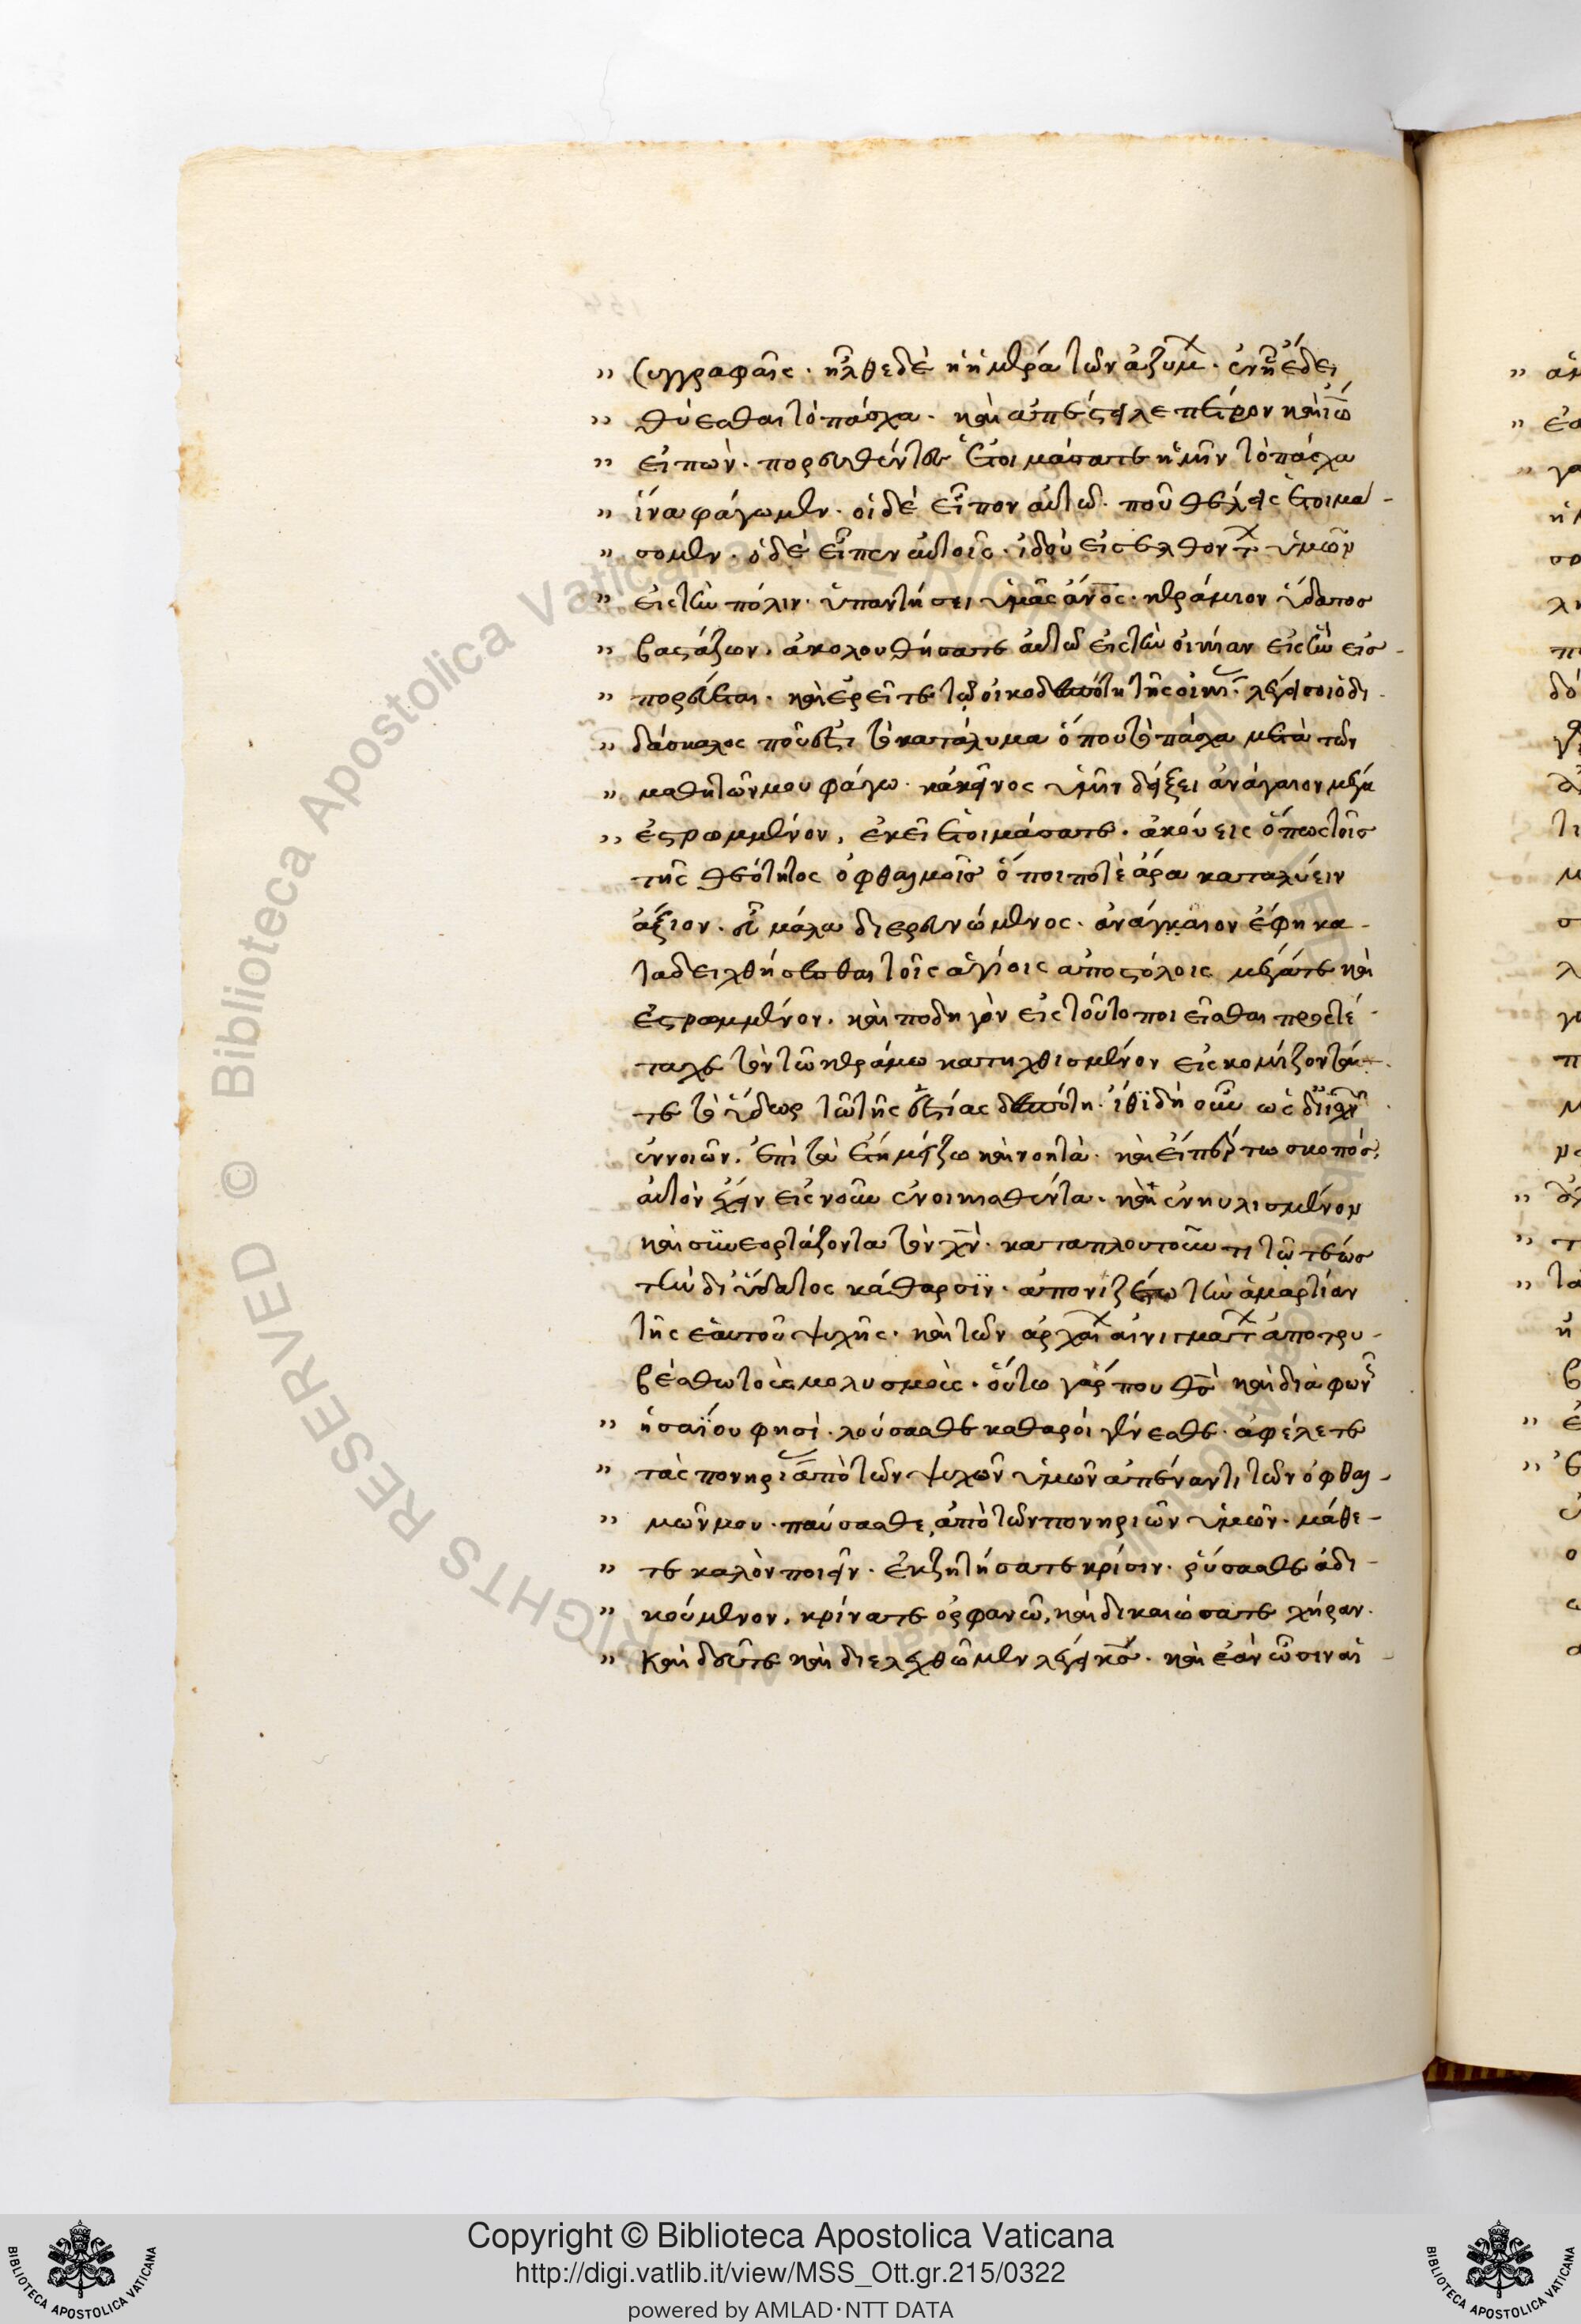 " συγγραφαῖς· ἦλθε δὲ ἡ ἡμέρα τῶν ἀζύμ· ἐν ᾗ ἔδει
" θύεσθαι τὸ πάσχα. καὶ ἀπέστειλε πέτρον καὶ ἰω
" εἰπών. πορευθέντες ἑτοιμάσατε ἡμῖν τὸ πάσχα
" ἵνα φάγωμεν. οἱ δὲ εἶπον αὐτῶ. ποῦ θέλεις ἑτοιμα-
" σομεν. ὁ δὲ εἶπεν αὐτοῖς. ἰδοὺ εἰσελθόντ ὑμῶν
" εἰς τὴν πόλιν. ὑπαντήσει ὑμᾶς ἄνος. κεράμιον ὕδατος
" βαστάζων. ἀκολουθήσατε αὐτῶ εἰς τὴν οἰκίαν εἰς ἣν εἰσ-
" πορεύεται. καὶ ἐρεῖτε τῷ οἰκοδεσπότη τῆς οἰκί. λέγει σοι ὁ δι-
" δάσκαλος ποῦ ἐστι τὸ κατάλυμα ὅπου τὸ πάσχα μετὰ τῶν
" μαθητῶν μου φάγω. κἀκεῖνος ὑμῖν δείξει ἀνάγαιον μέγα
" ἐστρωμμένον, ἐκεῖ ἑτοιμάσατε. ἀκούεις ὅπως τοῖς
τῆς θεότητος ὀφθαλμοῖς ὅποι ποτὲ ἄρα καταλύειν
ἄξιον. εὖ μάλα διερευνώμενος. ἀνάγκαιον ἔφη κα-
ταδειχθήσεσθαι τοῖς ἁγίοις ἀποστόλοις μέγα τε καὶ
ἐστρωμμένον. καὶ ποδηγὸν εἰς τοῦτο ποιεῖσθαι προστέ-
ταχε τὸν τῶ κεράμω κατηχθισμένον εἰσκομίζοντά
τε τὸ ὕδωρ τῶ τῆς ἑστίας δεσπότη. ἴθι δὴ οὖν ὡς δι
ἐννοιῶν. ἐπὶ τὰ ἔτι μείζω καὶ νοητὰ. καὶ εἴπερ τω σκοπός.
αὐτὸν ἔχειν εἰς νοῦν ἐνοικισθέντα. καὶ ἐνηυλισμένον
καὶ συνεορτάζοντα τὸν χν. καταπλουτοῦντι τῷ τέως
τὴν δι' ὕδατος κάθαρσιν. ἀπονιζέτω τὴν ἁμαρτίαν
τῆς ἑαυτοῦ ψυχῆς. καὶ τῶν ἀρχαί αἰνιγμάτ ἀποτρυ-
βέσθω τοὺς μολυσμοὺς. οὕτω γάρ που θς καὶ διὰ φων
" ἡσαΐου φησὶ. λούσασθε καθαροὶ γένεσθε. ἀφέλετε
" τὰς πονηρί ἀπὸ τῶν ψυχῶν ὑμῶν ἀπέναντι τῶν ὀφθαλ-
" μῶν μου. παύσασθε, ἀπὸ τῶν πονηριῶν ὑμῶν. μάθε-
" τε καλὸν ποιεῖν. ἐκζητήσατε κρίσιν. ῥύσασθε ἀδι-
" κούμενον. κρίνατε ὀρφανῶ, καὶ δικαιώσατε χήραν.
" Καὶ δεῦτε καὶ διελεγχθῶμεν λέγει κς. καὶ ἐὰν ὦσιν αἱ-
Copyright © Biblioteca Apostolica Vaticana
http://digi.vatlib.it/view/MSS_Ott.gr.215/0322
powered by AMLAD·NTT DATA
BIBLIOTECA APOSTOLICA VATICANA
BIBLIOTECA APOSTOLICA VATICANA
© Biblioteca Apostolica Vaticana ALL RIGHTS RESERVED